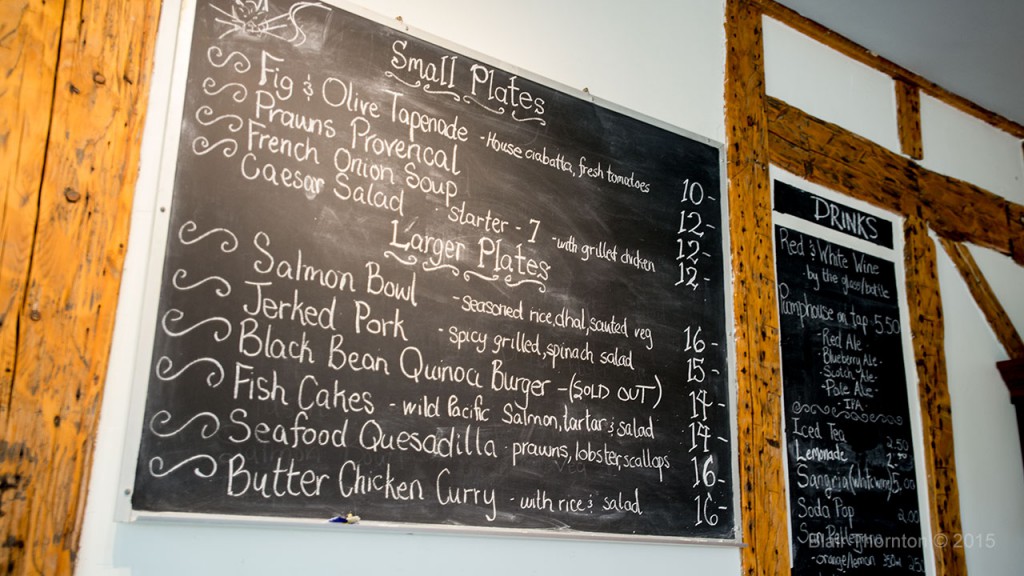 Small Plates
Fig & Olive Tapenade - House ciabatta, fresh tomatoes 10-
Prawns Provencal 12-
French Onion Soup starter - 7 12-
Caesar Salad - with grilled chicken 12-
Larger Plates
Salmon Bowl - seasoned rice, dhal, sauted veg 16-
Jerked Pork - spicy grilled, spinach salad 15-
Black Bean Quinoa Burger - (SOLD OUT) 14-
Fish Cakes - wild Pacific Salmon, tartar & salad 14-
Seafood Quesadilla - prawns, lobster, scallops 16-
Butter Chicken Curry - with rice & salad 16-
DRINKS
Red & White Wine
by the glass/bottle
Pumphouse on Tap 5.50
Red Ale -
Blueberry Ale -
Scotch Ale -
Pale Ale -
IPA
Iced Tea 2.50
Lemonade
Sangria 5.00
Soda Pop 2.00
- orange/lemon
Blair Thornton © 2015